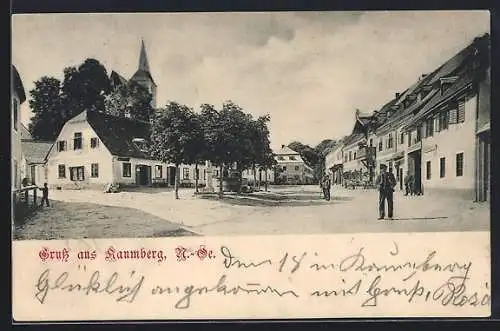 Gruß aus Kaumberg, N.-Oe. Den 18 in Kaumberg
Glücklich angekommen mit Gruß, Rosa